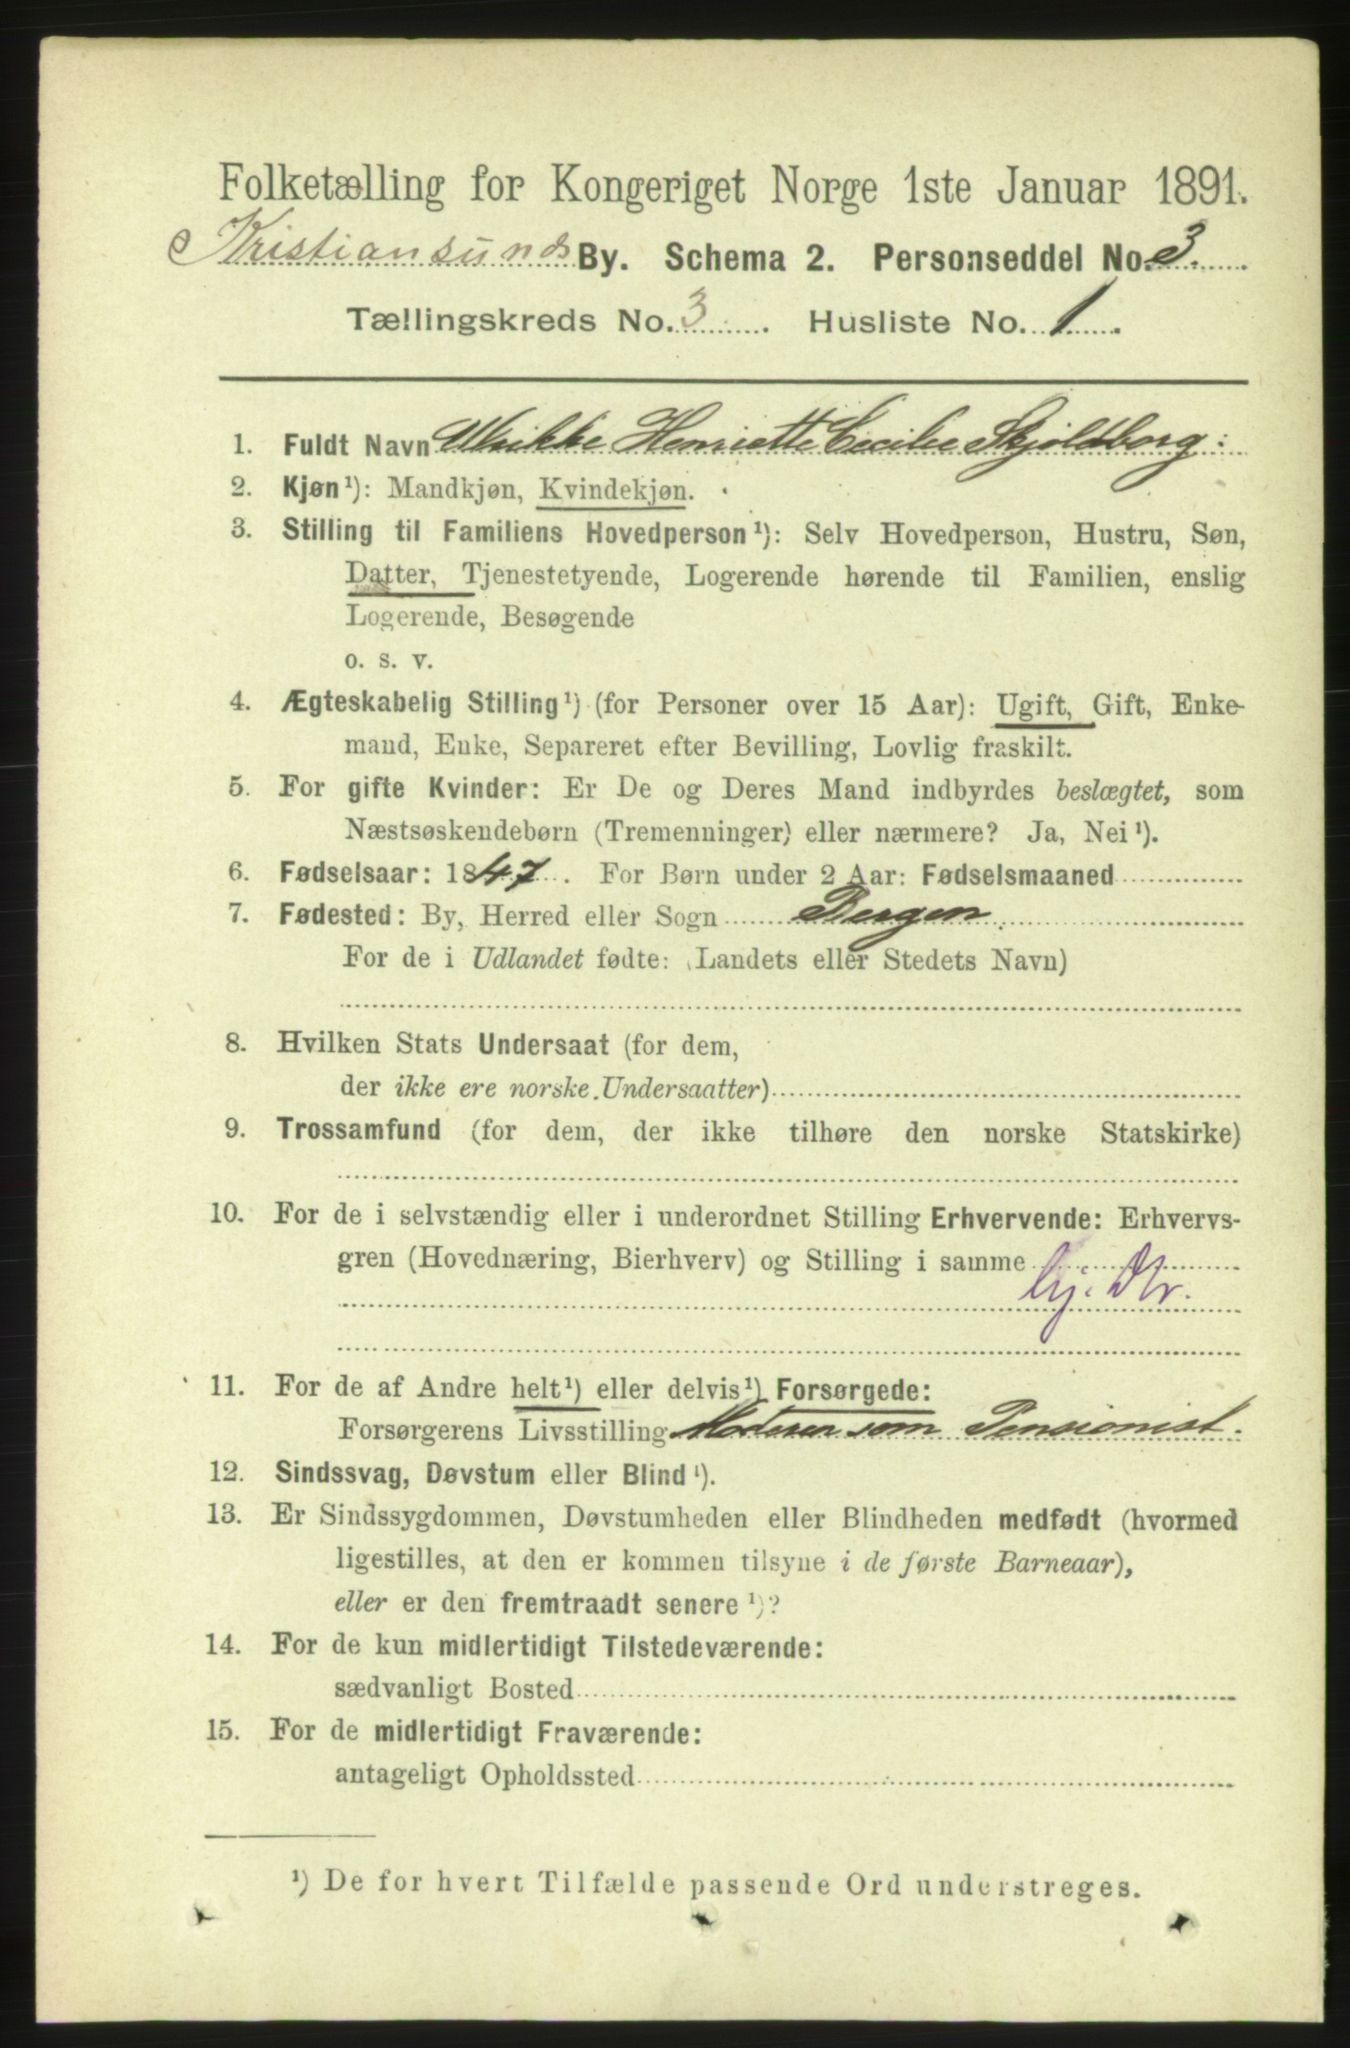 Folketælling for Kongeriget Norge 1ste Januar 1891.
Kristiansunds By. Schema 2. Personseddel No. 3.
Tællingskreds No. 3. Husliste No. 1.
1. Fuldt Navn Ulrikke Henriette Cecilie Skjoldborg.
2. Kjøn¹): Mandkjøn, Kvindekjøn.
3. Stilling til Familiens Hovedperson¹): Selv Hovedperson, Hustru, Søn,
Datter, Tjenestetyende, Logerende hørende til Familien, enslig
Logerende, Besøgende
o. s. v.
4. Ægteskabelig Stilling¹) (for Personer over 15 Aar): Ugift, Gift, Enke-
mand, Enke, Separeret efter Bevilling, Lovlig fraskilt.
5. For gifte Kvinder: Er De og Deres Mand indbyrdes beslægtet, som
Næstsøskendebørn (Tremenninger) eller nærmere? Ja, Nei¹).
6. Fødselsaar: 1847. For Børn under 2 Aar: Fødselsmaaned
7. Fødested: By, Herred eller Sogn Bergen.
For de i Udlandet fødte: (Landets eller Stedets Navn)
8. Hvilken Stats Undersaat (for dem,
der ikke ere norske Undersaatter)
9. Trossamfund (for dem, der ikke tilhøre den norske Statskirke)
10. For de i selvstændig eller i underordnet Stilling Erhvervende: Erhvervs-
gren (Hovednæring, Bierhverv) og Stilling i samme
hj. Dtr.
11. For de af Andre helt¹) eller delvis¹) Forsørgede:
Forsørgerens Livsstilling Moderen som Pensionist.
12. Sindssvag, Døvstum eller Blind¹).
13. Er Sindssygdommen, Døvstumheden eller Blindheden medfødt (hvormed
ligestilles, at den er kommen tilsyne i de første Barneaar),
eller er den fremtraadt senere¹)?
14. For de kun midlertidigt Tilstedeværende:
sædvanligt Bosted
15. For de midlertidigt Fraværende:
antageligt Opholdssted
¹) De for hvert Tilfælde passende Ord understreges.